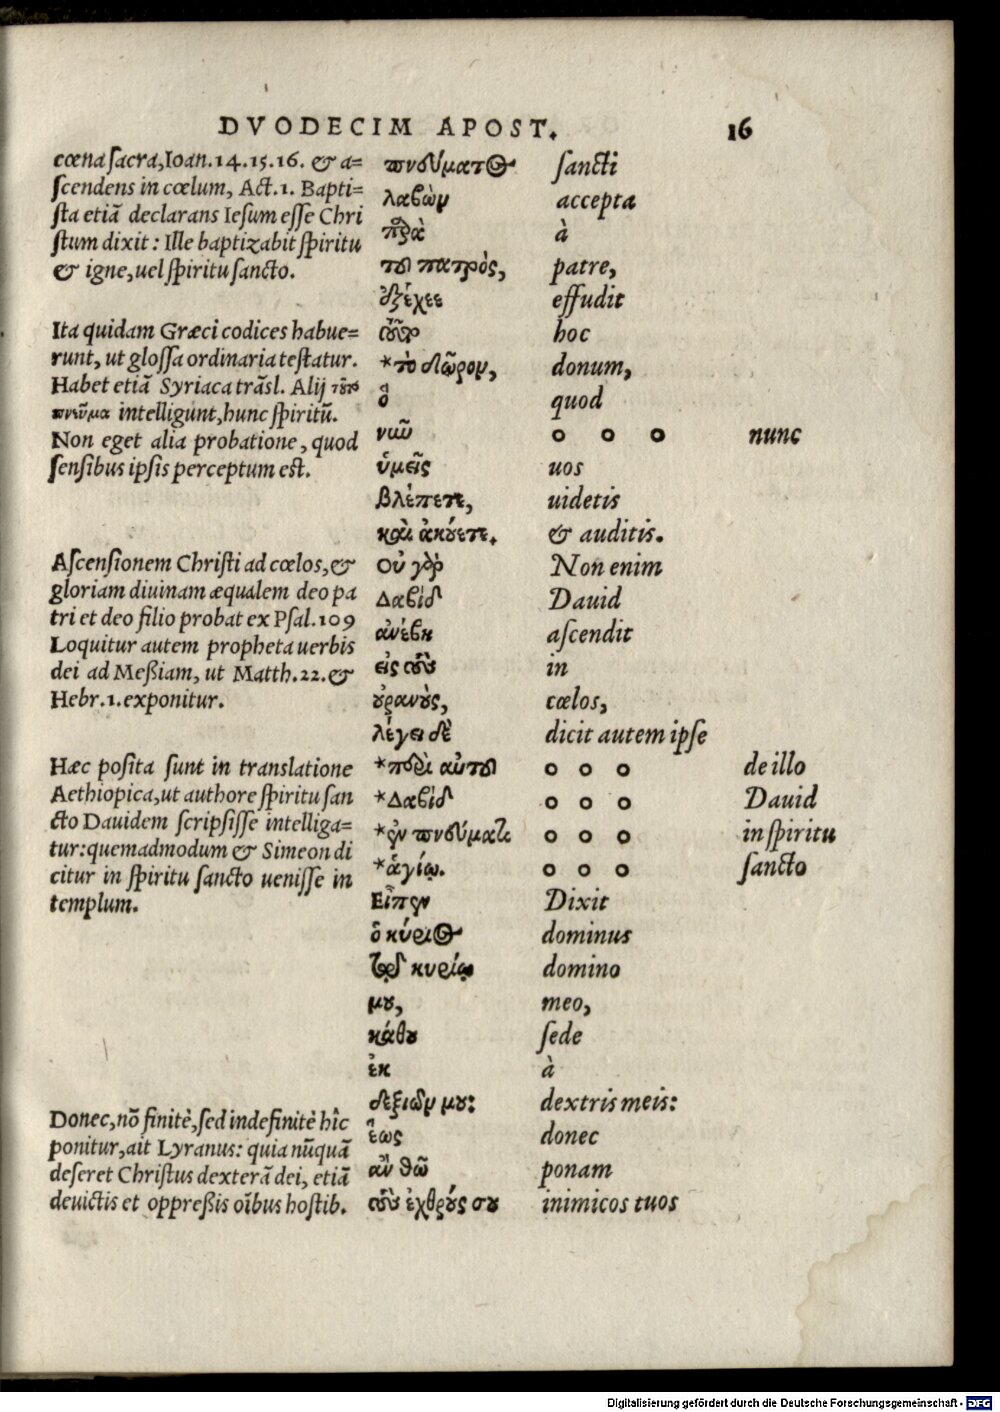 DVODECIM APOST. 16
cœna sacra, Ioan. 14. 15. 16. & a=
scendens in cœlum, Act. 1. Bapti=
sta etiã declarans Iesum esse Chri
stum dixit: Ille baptizabit spiritu
& igne, uel spiritu sancto.
Ita quidam Græci codices habue=
runt, ut glossa ordinaria testatur.
Habet etiã Syriaca trãsl. Alij τοῦτο
πνεῦμα intelligunt, hunc spiritũ.
Non eget alia probatione, quod
sensibus ipsis perceptum est.
Ascensionem Christi ad cœlos, &
gloriam diuinam æqualem deo pa
tri et deo filio probat ex Psal. 109
Loquitur autem propheta uerbis
dei ad Meßiam, ut Matth. 22. &
Hebr. 1. exponitur.
Hæc posita sunt in translatione
Aethiopica, ut authore spiritu san
cto Dauidem scripsisse intelliga=
tur: quemadmodum & Simeon di
citur in spiritu sancto uenisse in
templum.
Donec, nõ finitè, sed indefinitè hîc
ponitur, ait Lyranus: quia nũquã
deseret Christus dexterã dei, etiã
deuictis et oppreßis oĩbus hostib.
πνεύματος sancti
λαβὼν accepta
παρὰ à
τοῦ πατρὸς, patre,
ἐξέχεε effudit
τοῦτο hoc
*τὸ δῶρον, donum,
ὃ quod
νῦν o o o nunc
ὑμεῖς uos
βλέπετε, uidetis
καὶ ἀκούετε. & auditis.
Οὐ γὰρ Non enim
Δαβὶδ Dauid
ἀνέβη ascendit
εἰς τοὺς in
οὐρανοὺς, cœlos,
λέγει δὲ dicit autem ipse
*περὶ αὐτοῦ o o o de illo
*Δαβὶδ o o o Dauid
*ἐν πνεύματι o o o in spiritu
*ἁγίῳ. o o o sancto
Εἶπεν Dixit
ὁ κύριος dominus
τῷ κυρίῳ domino
μου, meo,
κάθου sede
ἐκ à
δεξιῶν μου: dextris meis:
ἕως donec
ἂν θῶ ponam
τοὺς ἐχθρούς σου inimicos tuos
Digitalisierung gefördert durch die Deutsche Forschungsgemeinschaft - DFG